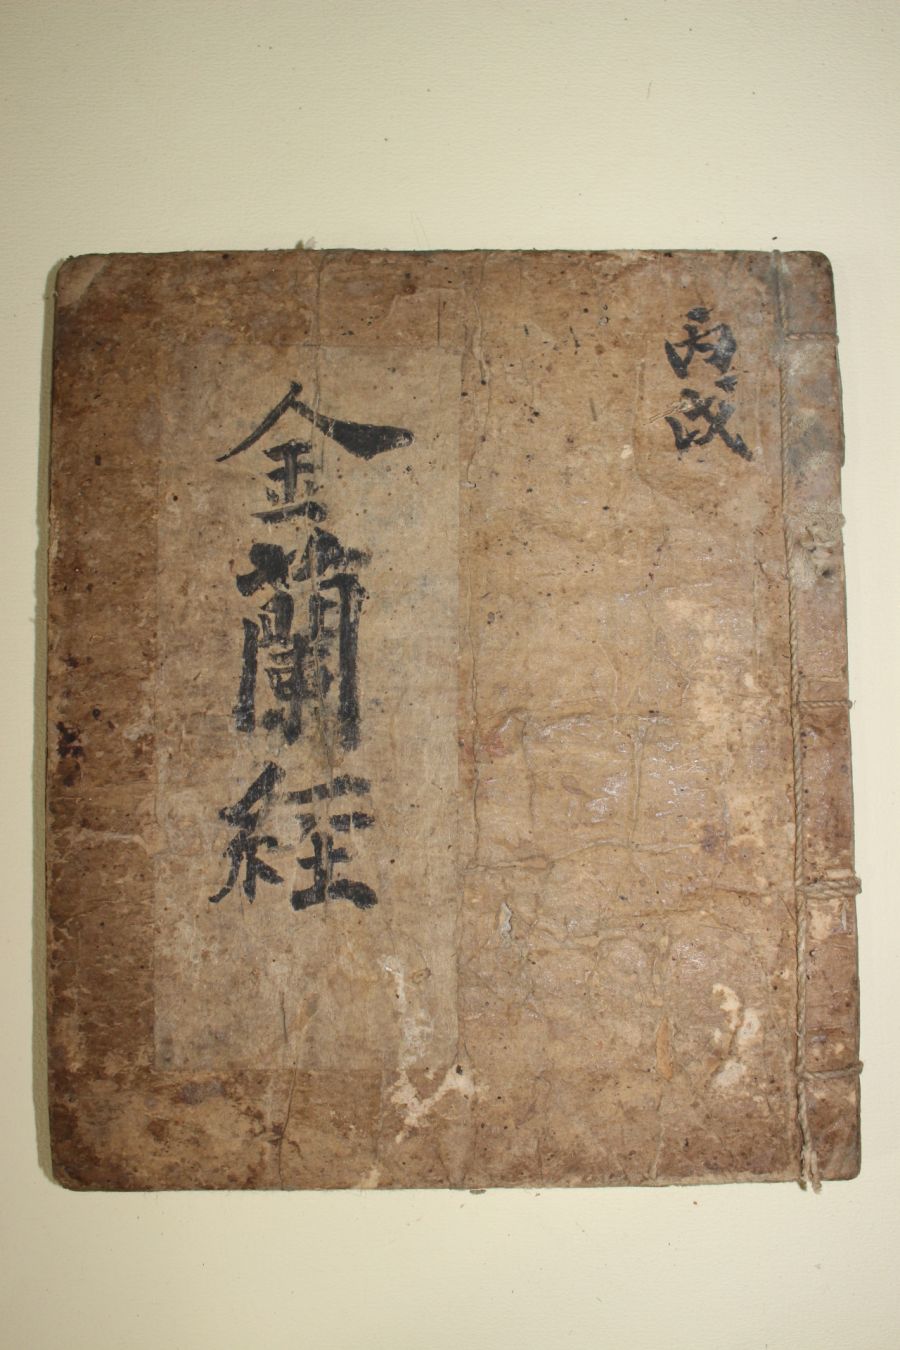 丙戌
金蘭經